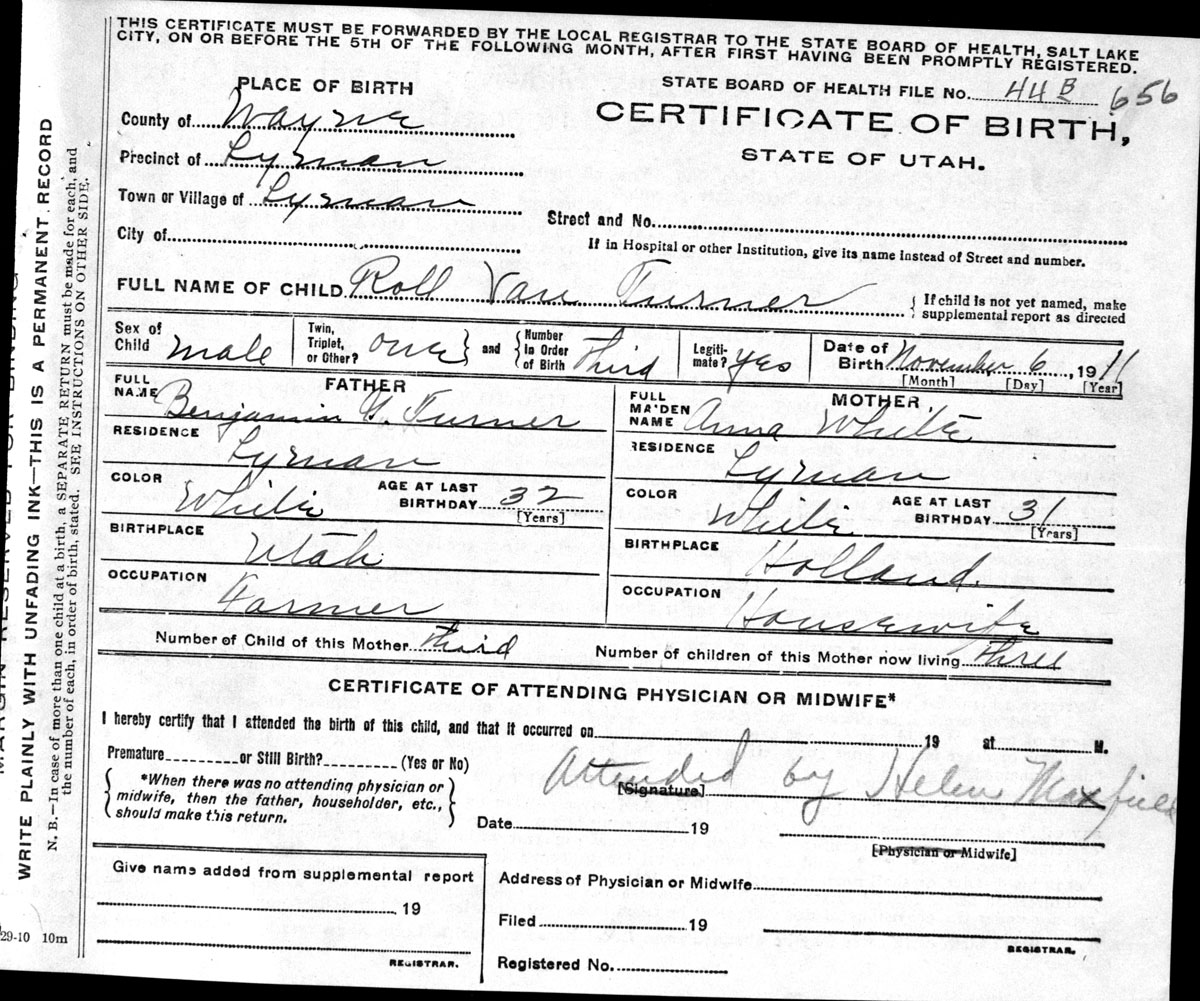 THIS CERTIFICATE MUST BE FORWARDED BY THE LOCAL REGISTRAR TO THE STATE BOARD OF HEALTH, SALT LAKE
CITY, ON OR BEFORE THE 5TH OF THE FOLLOWING MONTH, AFTER FIRST HAVING BEEN PROMPTLY REGISTERED.
PLACE OF BIRTH
STATE BOARD OF HEALTH FILE NO. 44 B 656
County of Wayne
CERTIFICATE OF BIRTH,
Precinct of Lyman
STATE OF UTAH.
Town or Village of Lyman
Street and No.
City of
If in Hospital or other Institution, give its name instead of Street and number.
FULL NAME OF CHILD Roll Van Turner { If child is not yet named, make
supplemental report as directed
Sex of Child male Twin, Triplet, or Other? one } and { Number in Order of Birth Third Legiti-mate? yes Date of Birth November 6, 1911
[Month] [Day] [Year]
FATHER
FULL NAME Benjamin Turner
RESIDENCE Lyman
COLOR White AGE AT LAST BIRTHDAY 32 [Years]
BIRTHPLACE Utah
OCCUPATION Farmer
MOTHER,
FULL MAIDEN NAME Anna White
RESIDENCE Lyman
COLOR White AGE AT LAST BIRTHDAY 31 [Years]
BIRTHPLACE Holland.
OCCUPATION Housewife
Number of Child of this Mother third Number of children of this Mother now living three
CERTIFICATE OF ATTENDING PHYSICIAN OR MIDWIFE*
I hereby certify that I attended the birth of this child, and that it occurred on 19 at M.
Premature or Still Birth? (Yes or No)
Attended by Helen Maxfield
[Signature]
{ *When there was no attending physician or
midwife, then the father, householder, etc.,
should make this return. }
Date 19
[Physician or Midwife]
Give name added from supplemental report
19
REGISTRAR.
Address of Physician or Midwife
Filed 19
REGISTRAR.
Registered No.
WRITE PLAINLY WITH UNFADING INK—THIS IS A PERMANENT RECORD
N. B.—In case of more than one child at a birth, a SEPARATE RETURN must be made for each, and
the number of each, in order of birth, stated. SEE INSTRUCTIONS ON OTHER SIDE.
29-10 10m